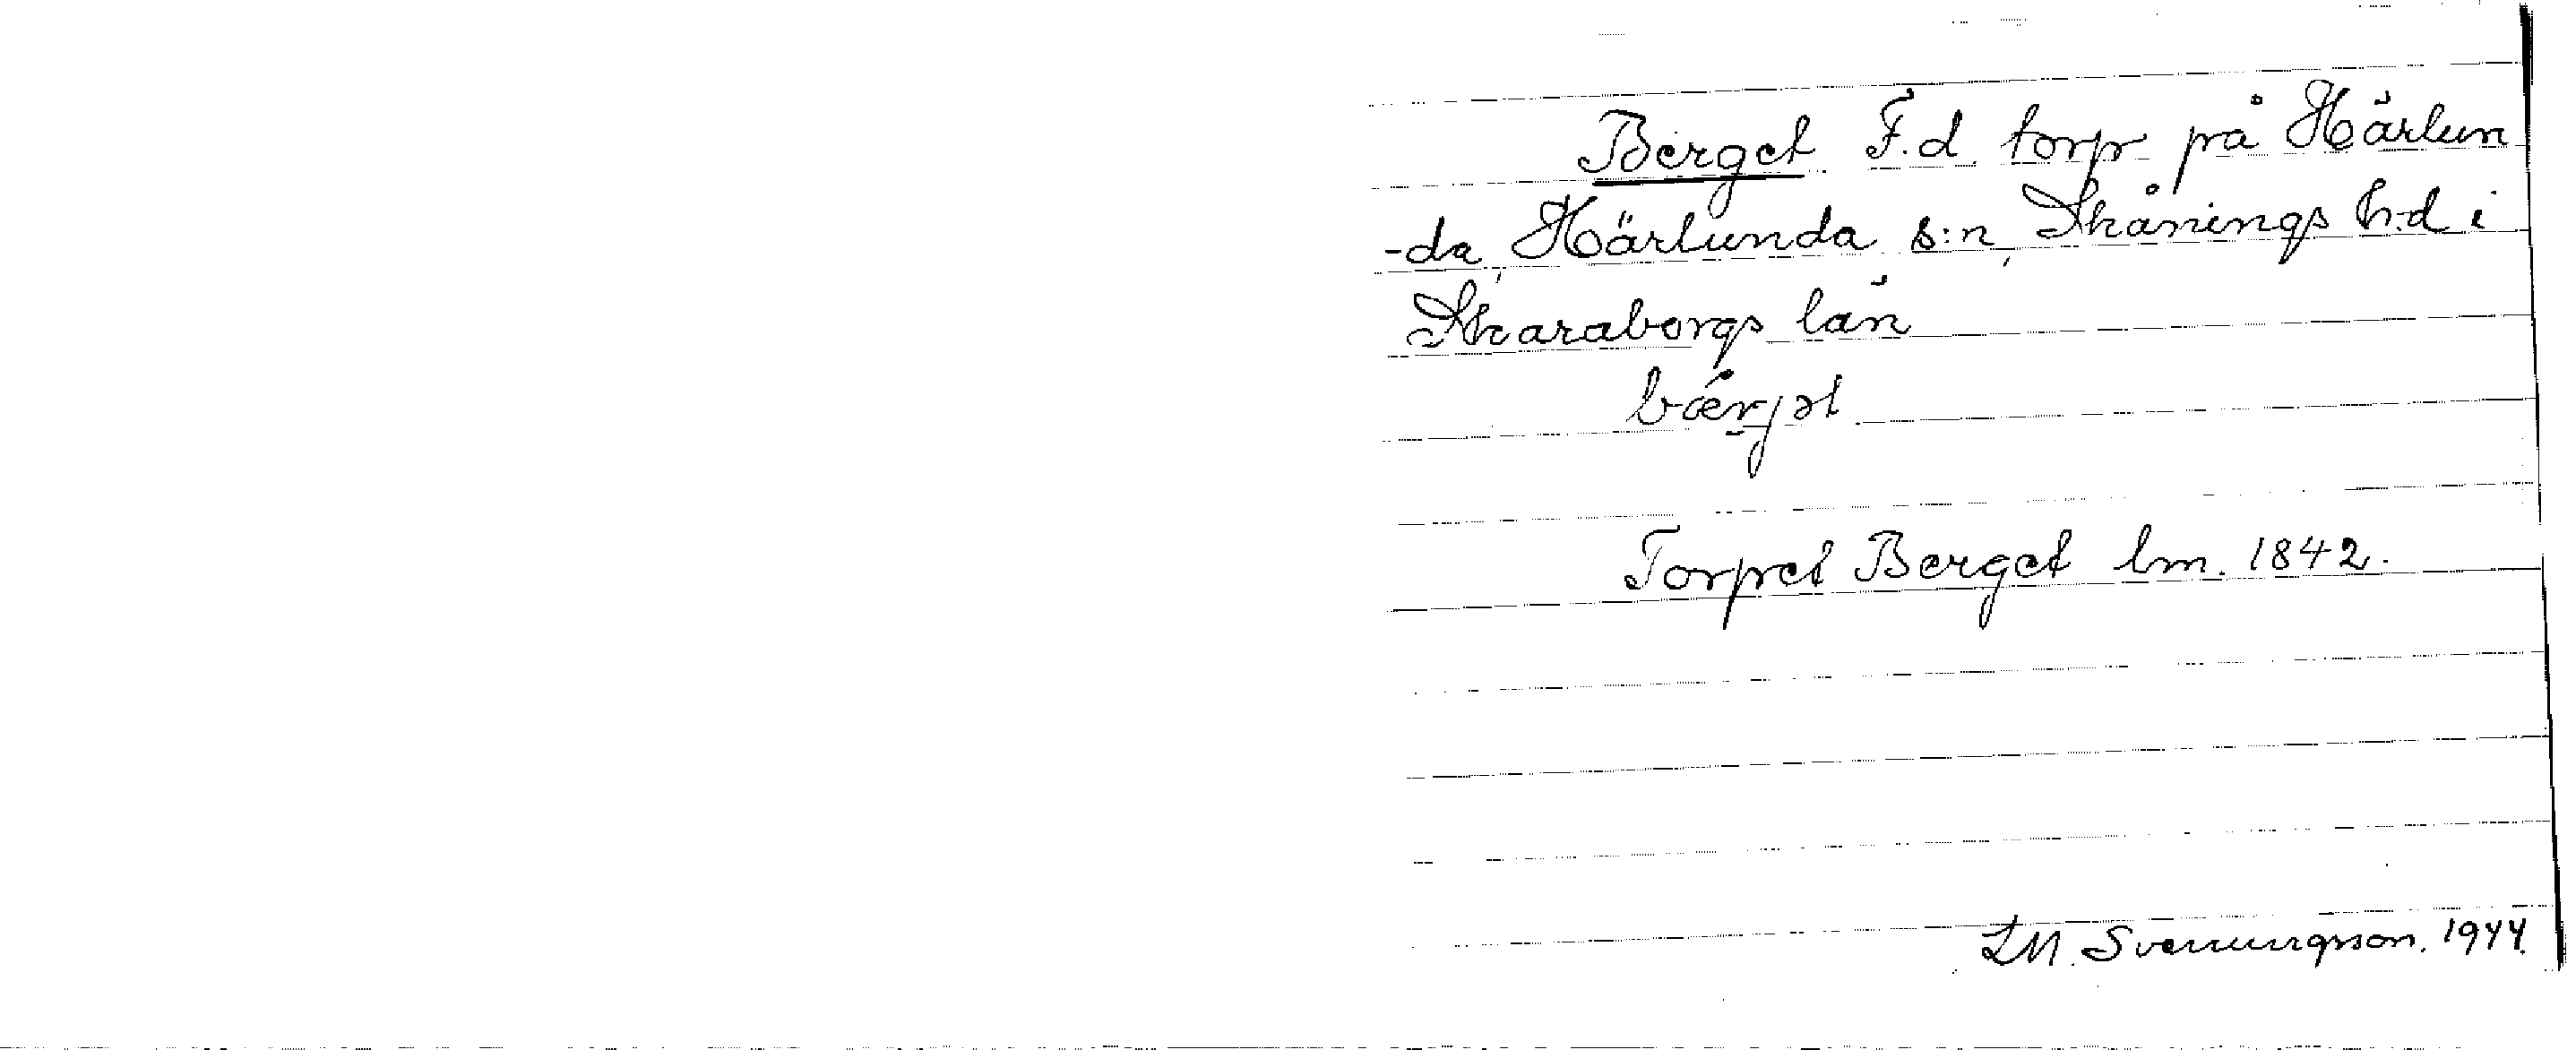 Berget F.d. torp på Härlun
-da, Härlunda s:n, Skånings h:d i
Skaraborgs län
bærjət
Torpet Berget lm. 1842.
LM. Svenungsson. 1944.